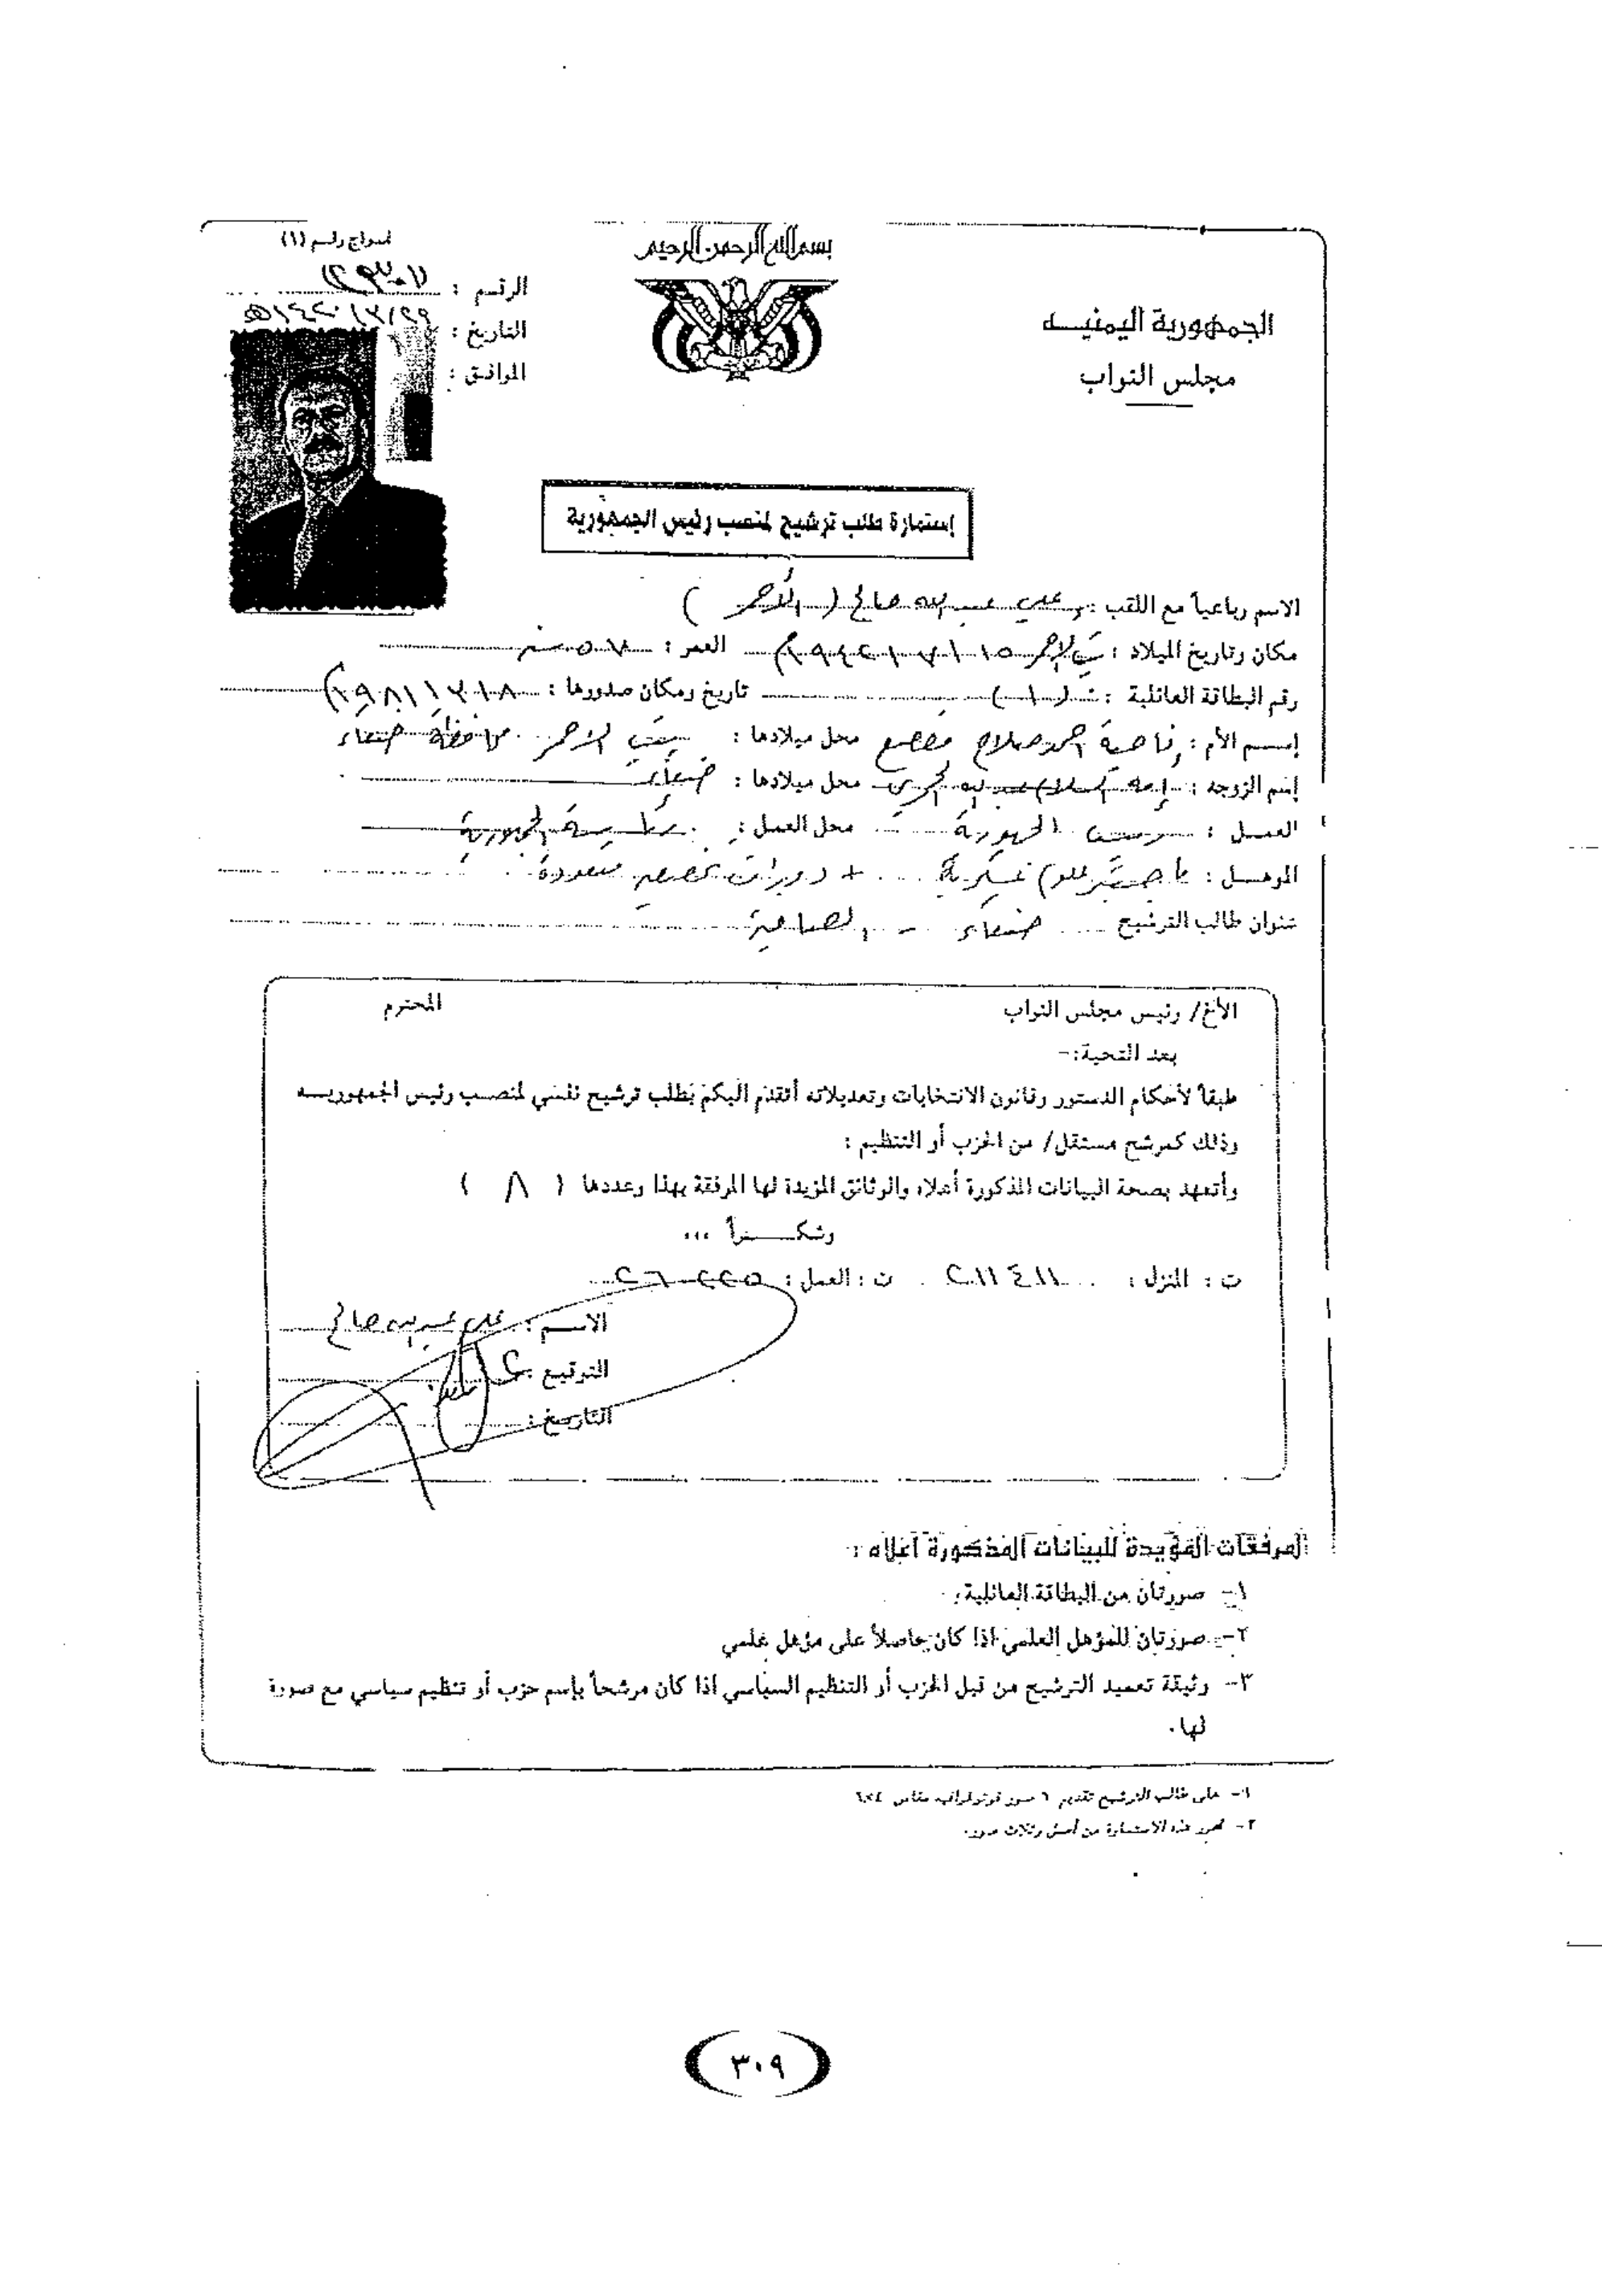 نموذج رقم (١)
بسم الله الرحمن الرحيم
الجمهورية اليمنيـــه
مجلس النواب
الرقم :
التاريخ : ٢٩/٣/١٤٢٠هـ
الموافق :
إستمارة طلب ترشيح لمنصب رئيس الجمهورية
الاسم رباعياً مع اللقب : علي عبدالله صالح (الأحمر)
مكان وتاريخ الميلاد : بيت الأحمر ١٩٤٢م العمر : ٥٧ سنة
رقم البطاقة العائلية : (١) تاريخ ومكان صدورها :
إسم الأم : ناصية احمد صلاح محل ميلادها : بيت الأحمر محافظة صنعاء
إسم الزوجه : محل ميلادها : صنعاء
العمـــل : رئيس الجمهورية محل العمل : رئاسة الجمهورية
المؤهـــل : ماجستير علوم عسكرية + دورات متعددة
عنوان طالب الترشيح صنعاء -
الأخ/ رئيس مجلس النواب المحترم
بعد التحية:-
طبقاً لأحكام الدستور وقانون الانتخابات وتعديلاته أتقدم اليكم بطلب ترشيح نفسي لمنصب رئيس الجمهوريـــه
وذلك كمرشح مستقل/ من الحزب أو التنظيم :
وأتعهد بصحة البيانات المذكورة أعلاه والوثائق المؤيدة لها المرفقة بهذا وعددها ( ٨ )
وشكـــــراً ...
ت : المنزل : ٢١١٤١١ ت : العمل : ٢٦٠٢٢٥
الاســـم : علي عبدالله صالح
التوقيع :
التاريخ :
المرفقات المؤيدة للبيانات المذكورة أعلاه :
١- صورتان من البطاقة العائلية.
٢- صورتان للمؤهل العلمي اذا كان حاصلاً على مؤهل علمي
٣- وثيقة تعميد الترشيح من قبل الحزب أو التنظيم السياسي اذا كان مرشحاً بإسم حزب أو تنظيم سياسي مع صورة
لها.
١- على طالب الترشيح تقديم ٦ صور فوتوغرافيه مقاس ٤×٦
٢- تحرر هذه الاستمارة من أصل وثلاث صور.
(٣٠٩)